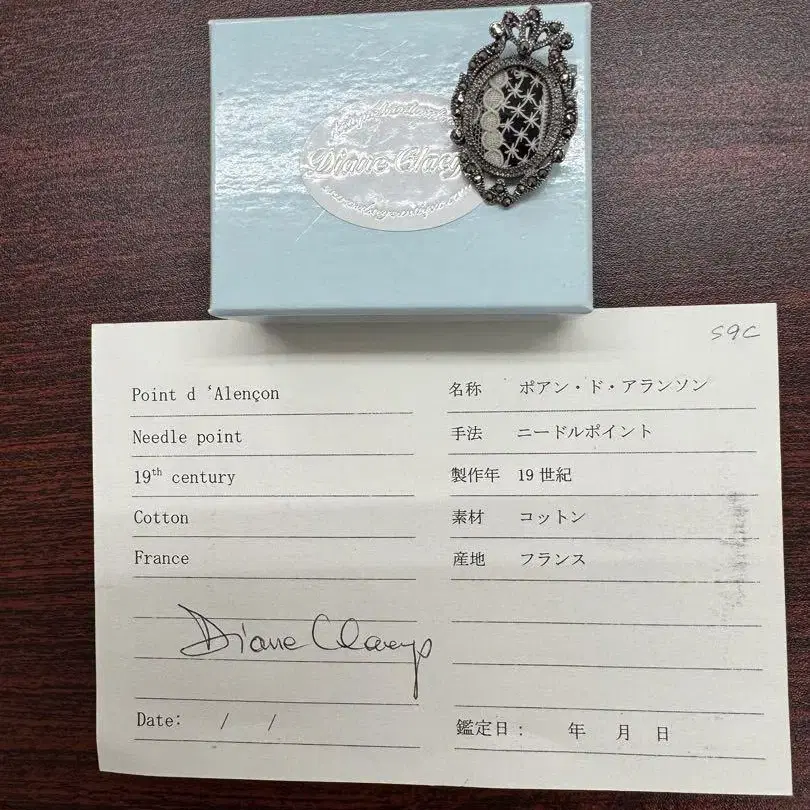 Diane Claeys
S9C
Point d 'Alençon
Needle point
19th century
Cotton
France
Diane Claeys
Date: / /
名称 ポアン・ド・アランソン
手法 ニードルポイント
製作年 19世紀
素材 コットン
産地 フランス
鑑定日: 年 月 日